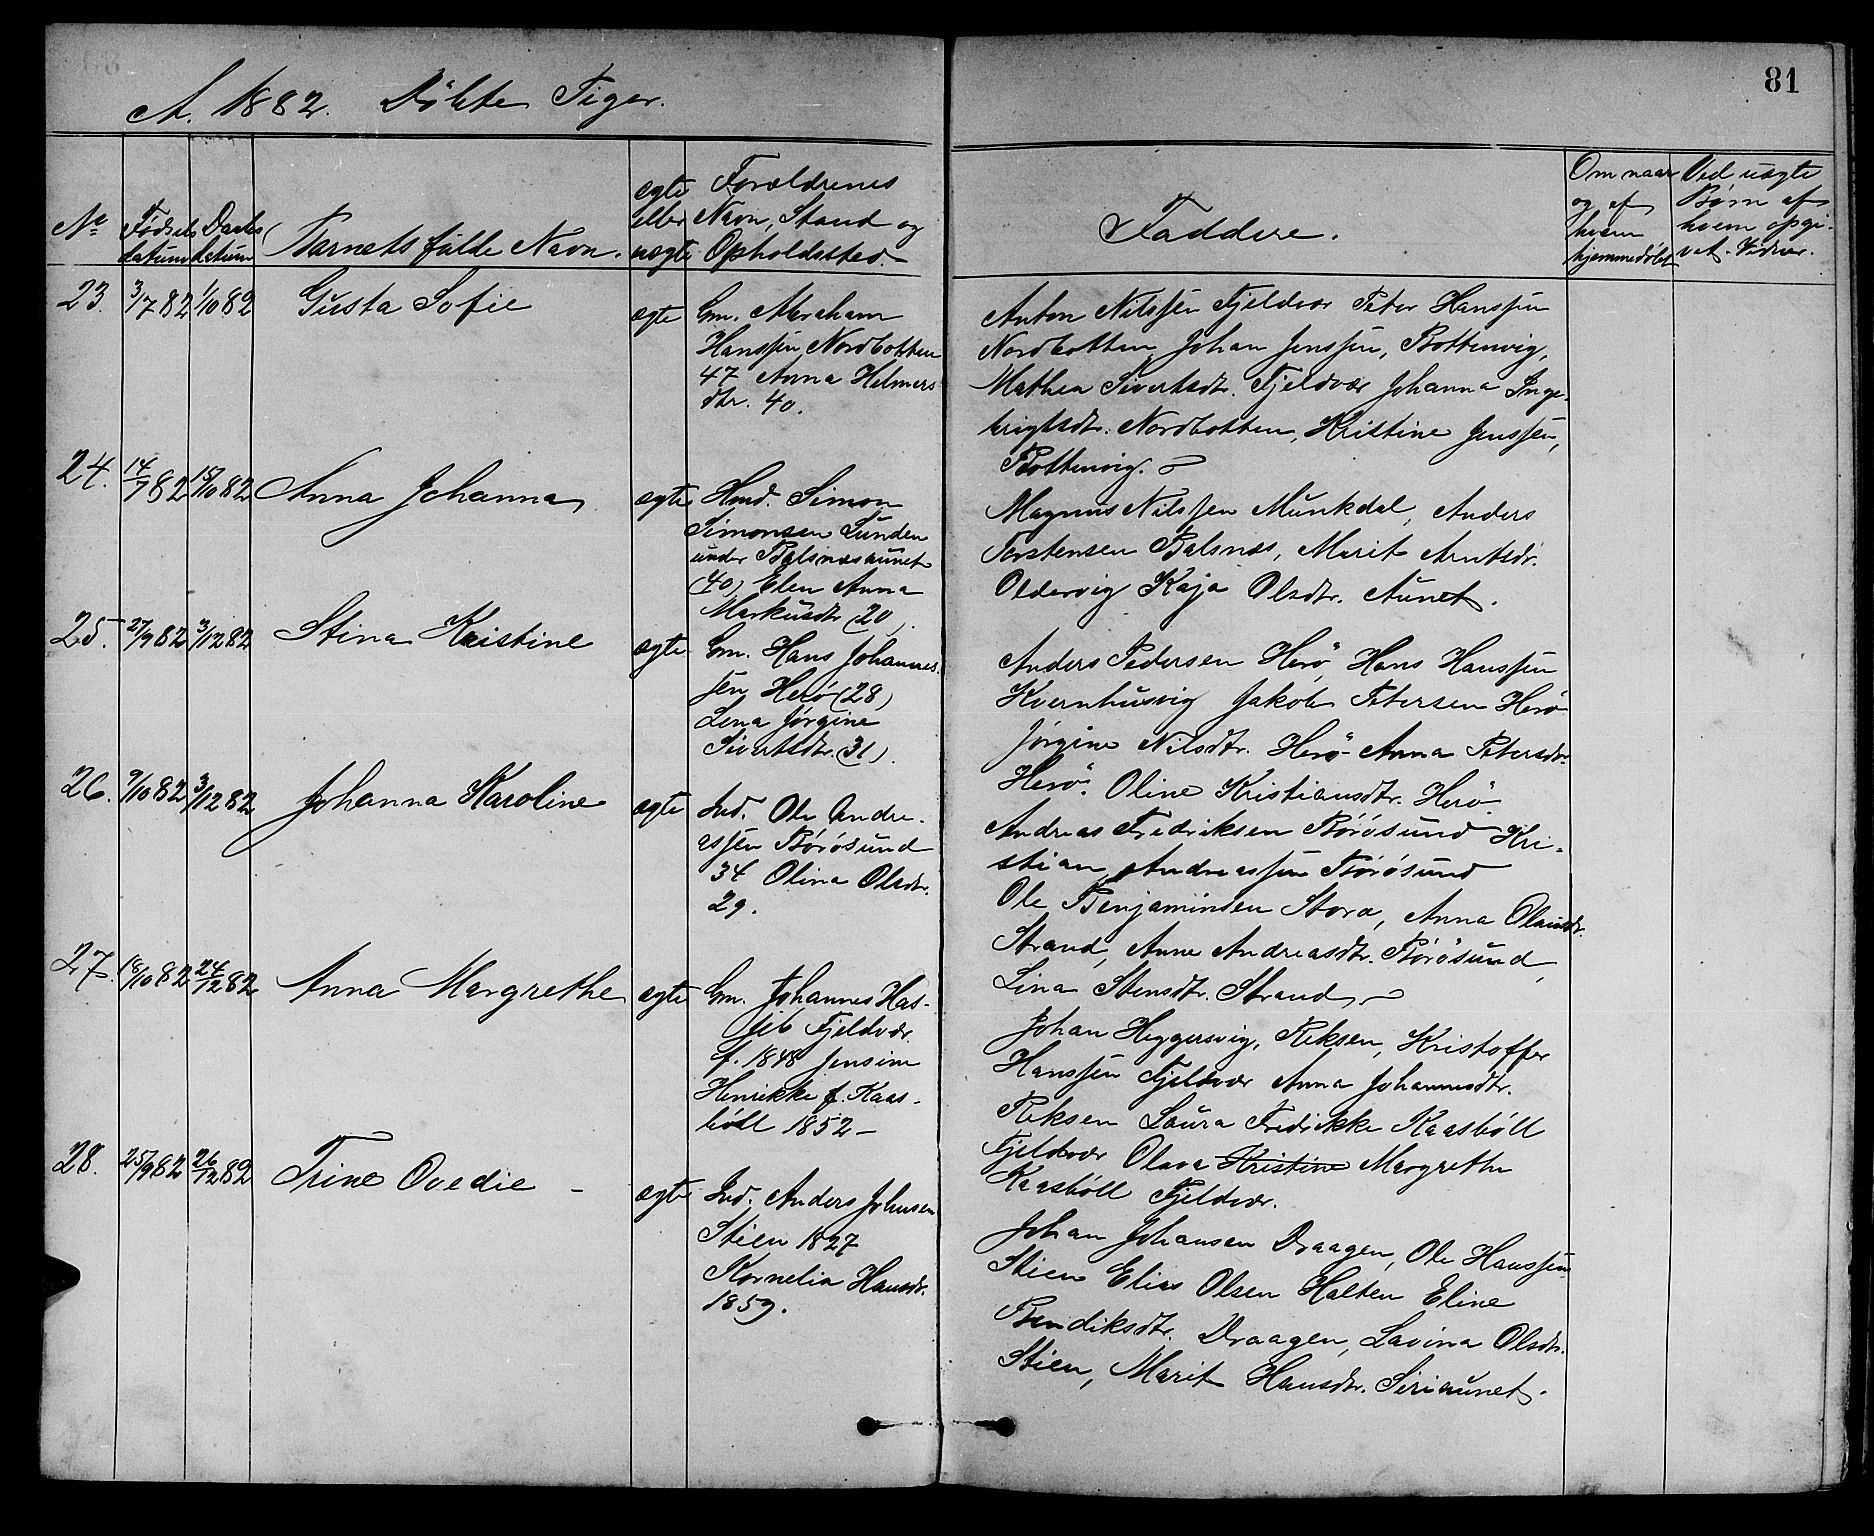 A. 1882. Döbte Piger.
81
No
Fødsels
datum
Daabs
datum
Barnets fulde Navn.
ægte
eller
uægte
Forældrenes
Navn, Stand og
Opholdssted.
Faddere.
Om naar
og af
hvem
hjemmedöbt
Ved uægte
Børn af
hvem opgi-
vet.
23. 3/7 82 1/10 82 Gusta Sofie ægte
Gm. Abraham
Hanssen Nordbotten
47 Anna Helmers
dtr. 40.
Anton Nilssen Fjeldvær Peter Hanssen
Nordbotten, Johan Jenssen, Bottenvig,
Mathea Sivertsdtr. Fjeldvær Johanna Inge-
brigtsdtr. Nordbotten, Kristine Jenssen,
Bottenvig.
24. 14/7 82 15/10 82 Anna Johanna ægte
Hmd. Simon
Simonsen Lunden
under Balsnæsaunet
(40) Elen Anna
Markusdtr (20).
Magnus Nilssen Munkdal, Anders
Torstensen Balsnæs, Marit Arntsdr.
Oldervig Kaja Olsdtr. Aunet.
25. 27/9 82 3/12 82 Stina Kristine ægte
Gm. Hans Johannes-
sen, Herö (28)
Lena Jørgine
Sivertsdtr. (31).
Anders Pedersen Herö, Hans Hanssen
Kvernhusvig Jakob Petersen Herö
Jørgine Nilsdtr. Herö Anna Petersdtr.
Herö. Oline Kristiansdtr. Herö
26. 9/10 82 3/12 82 Johanna Karoline ægte
Ind. Ole Andre-
assen Börösund
34 Olina Olsdtr.
29.
Andreas Fredriksen Börösund Kri-
stian Andreassen Börösund
Ole Benjaminsen Storø, Anna Olausdr.
Strand, Anne Andreasdtr. Börösund,
Lina Stensdtr. Strand,
27. 18/10 82 24/12 82 Anna Margrethe ægte
Gm. Johannes Has-
feb Fjeldvær
f. 1848 Jensine
Henrikke f. Kaas-
böll 1852 –
Johan Heggersvig, Reksen, Kristoffer
Hanssen Fjeldvær Anna Johannesdtr.
Reksen Laura Fredrikke Kaasböll
Fjeldvær Olava Kristine Margrethe
Kaasböll Fjeldvær.
28. 25/9 82 26/12 82 Trine Ovedie – ægte
Ind. Anders Johnsen
Stien 1827
Kornelia Hansdr.
1859.
Johan Johansen Draagen, Ole Hanssen
Stien Elias Olsen Halten Eline
Bendiksdtr. Draagen, Lavina Olsdtr.
Stien, Marit Hansdtr. Siriaunet.